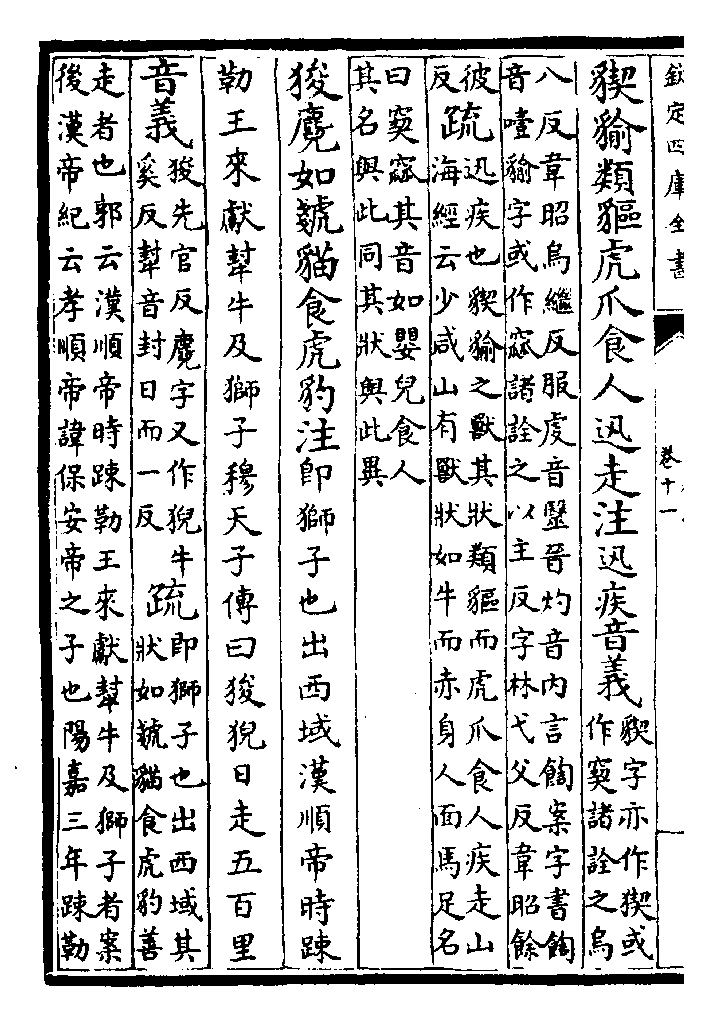 欽定四庫全書
卷十一
䝟貐類貙虎爪食人迅走注迅疾音義
䝟字亦作猰或
作窫諸詮之烏
八反韋昭烏繼反服虔音毉晉灼音内言案字書
音噎貐字或作窳諸詮之以主反字林弋父反韋昭餘
彼
反
疏
迅疾也䝟貐之獸其狀類貙而虎爪食人疾走山
海經云少咸山有獸狀如牛而赤身人面馬足名
曰窫窳其音如嬰兒食人
其名與此同其狀與此異
狻麑如虦貓食虎豹注即獅子也出西域漢順帝時踈
勒王來獻犎牛及獅子穆天子傳曰狻猊日走五百里
音義
狻先官反麑字又作猊牛
奚反犎音封日而一反
疏
即獅子也出西域其
狀如虦貓食虎豹善
走者也郭云漢順帝時踈勒王來獻犎牛及獅子者案
後漢帝紀云孝順帝諱保安帝之子也陽嘉三年踈勒